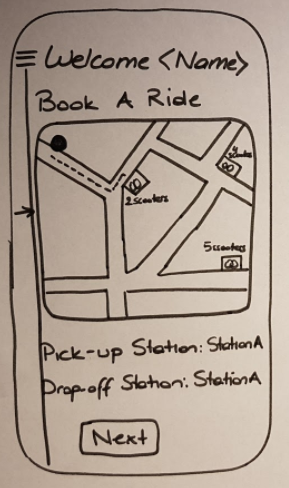 Welcome <Name>
Book A Ride
4
scooters
2 scooters
5 scooters
Pick-up Station: Station A
Drop-off Station: Station A
Next